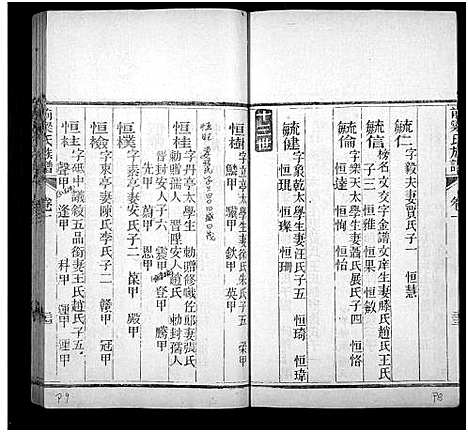 前梁氏族譜 卷一
毓仁 字毅夫妻賈氏子一 恒慧
毓信 榜名文炆字金譜文庠生妻滕氏趙王氏
子三 恒雅 恒果 恒敏
毓倫 字樂天太學生妻聶氏展氏子四 恒恪
恒達 恒恂
毓健 字泉乾太學生妻汪氏子五 恒琦 恒瑋
恒琨 恒璡 恒珊
十二世
恒樹
麟甲 驥甲 欽甲 英甲
恒桂 字丹亭太學生 勅贈修職郎妻張氏
勅贈孺人 晉陞安人趙氏 勅封孺人
晉封安人子六 雲甲 登甲 騰甲
先甲 蔚甲 恩甲
恒樸 字素亭妻安氏子二 葆甲 殿甲
恒檢 字東亭妻陳氏李氏子二 贊甲 冠甲
恒柱 字砥中議敘五品銜妻王氏趙氏子五
聲甲 逢甲 科甲 連甲
前梁氏族譜 卷一
P9
P8